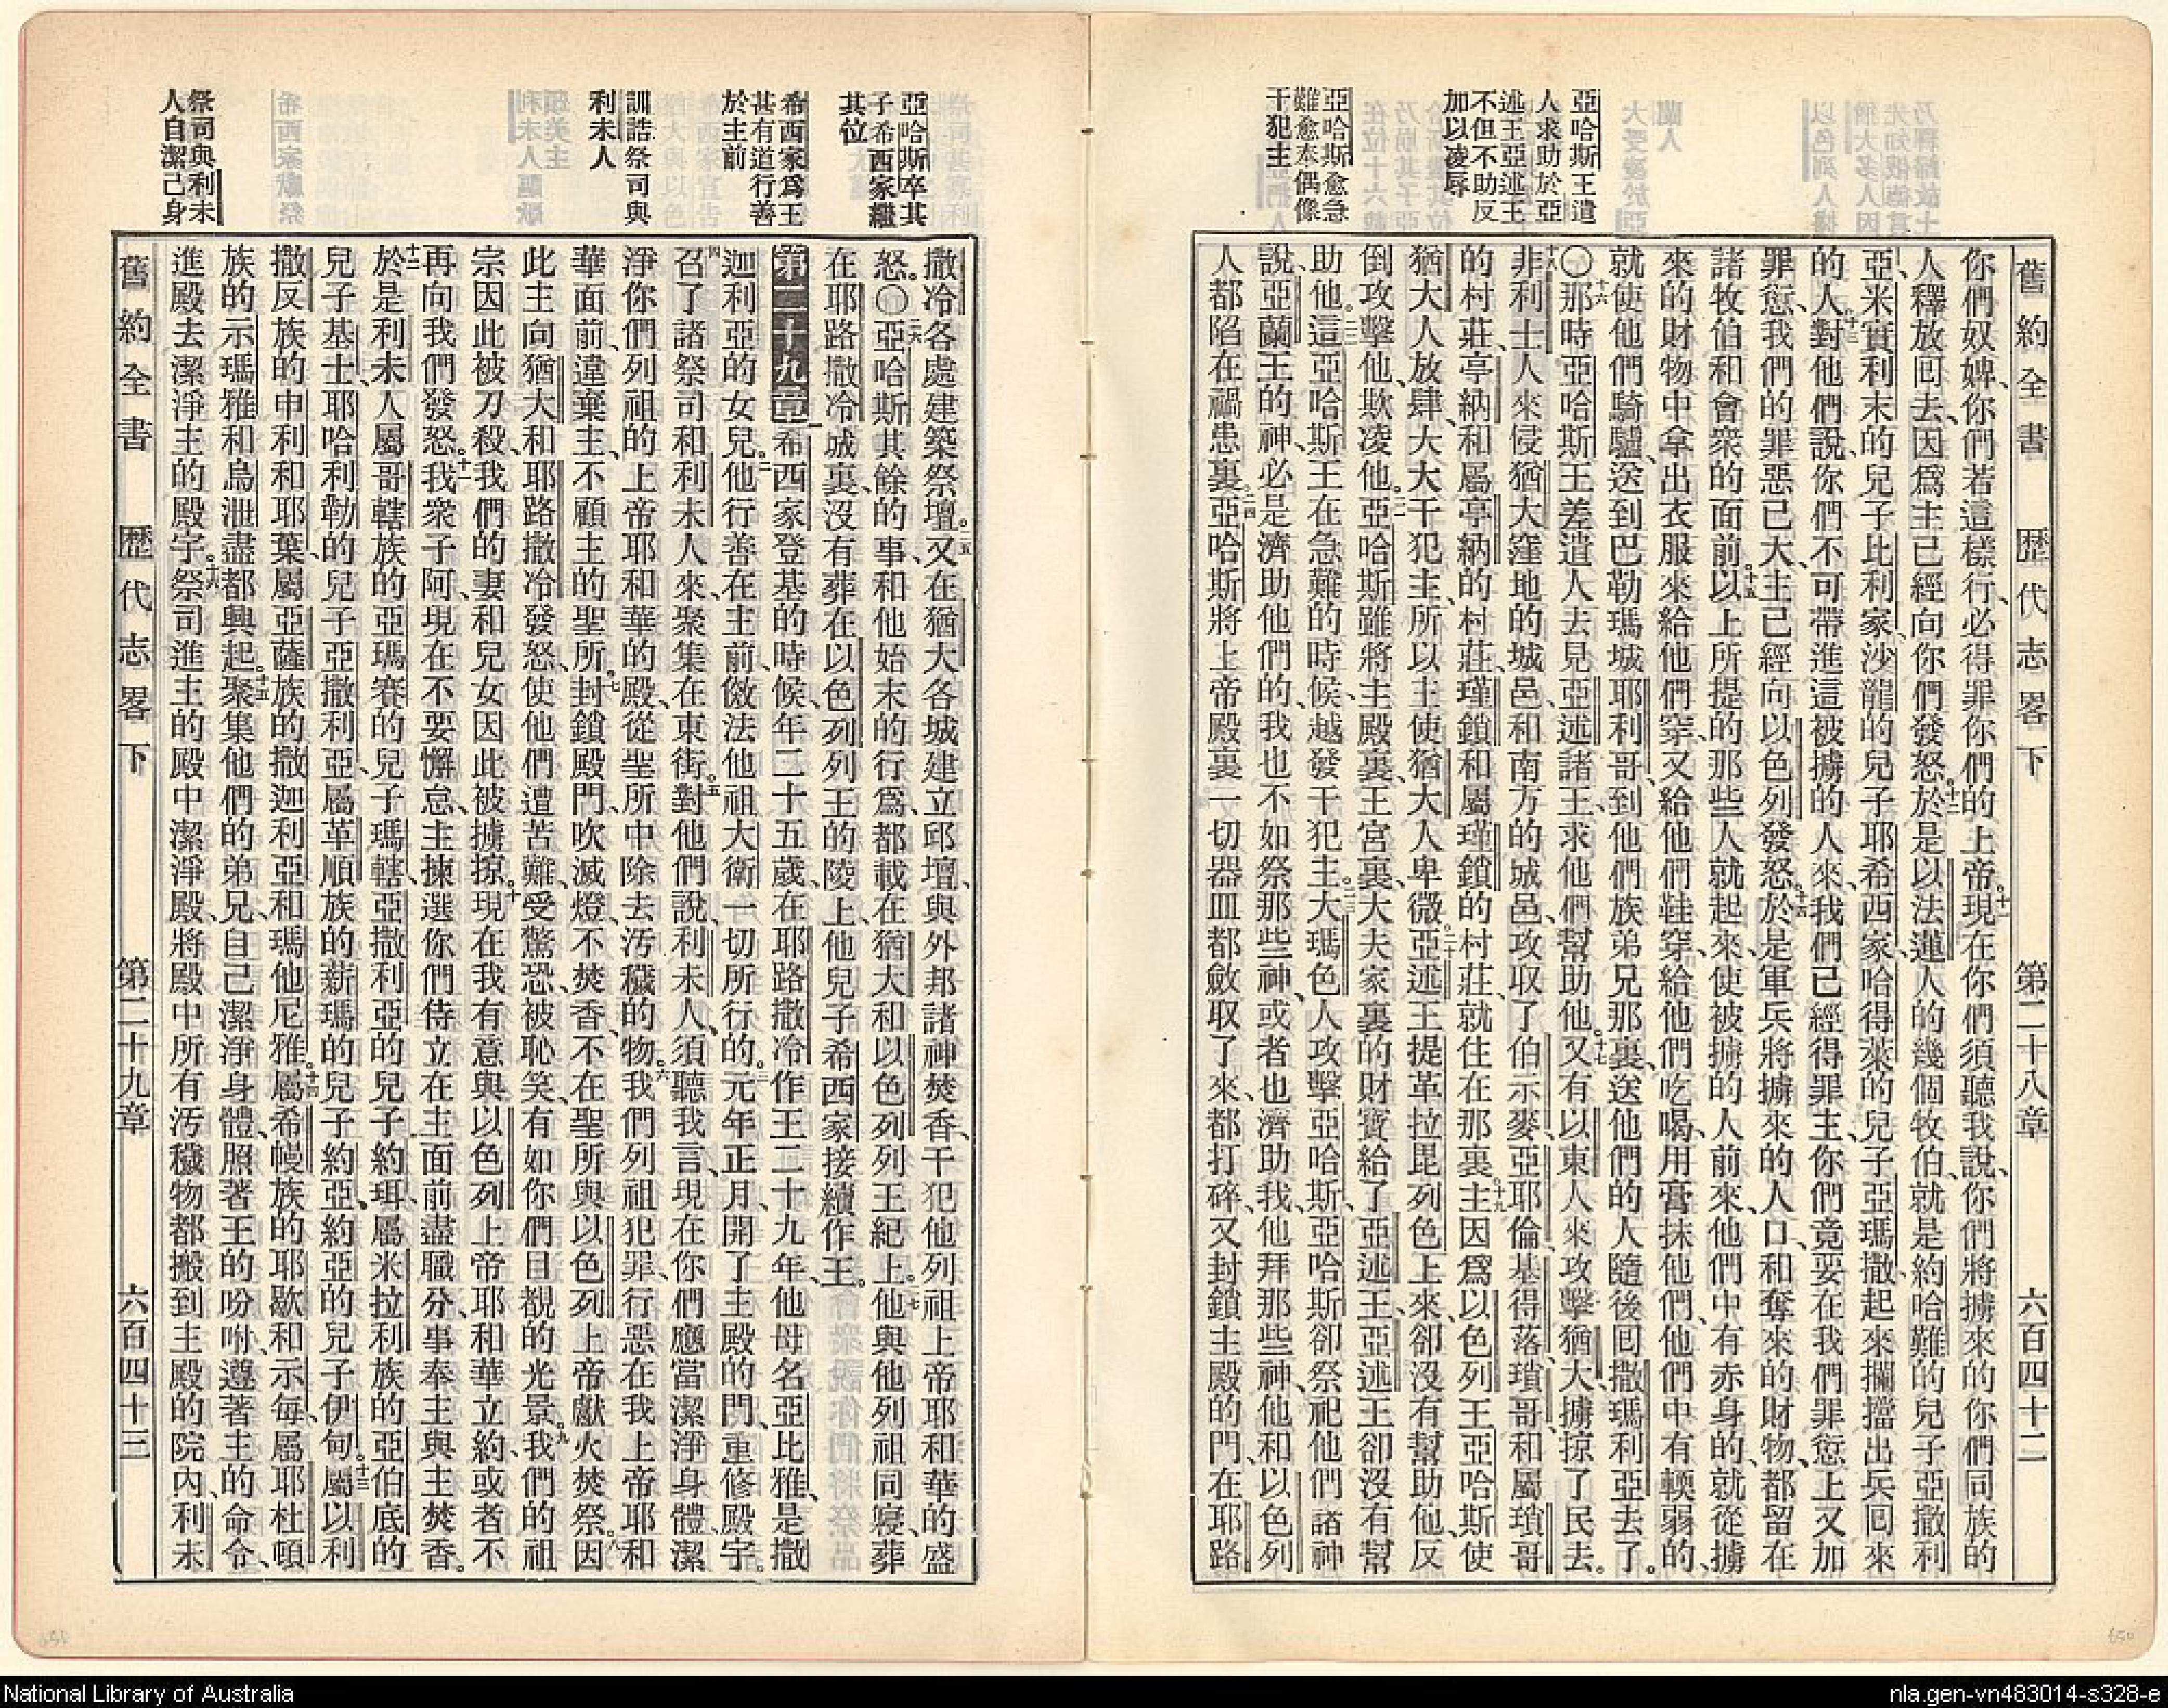 舊約全書 歷代志畧下 第二十八章 六百四十二
亞哈斯王遣
人求助於亞
述王亞述王
不但不助反
加以凌辱
亞哈斯愈急
難愈奉偶像
干犯主
你們奴婢、你們若這樣行、必得罪你們的上帝。十一現在你們須聽我說、你們將擄來的你們同族的
人釋放回去、因爲主已經向你們發怒。十二於是以法蓮人的幾個牧伯、就是約哈難的兒子亞撒利
亞、米實利末的兒子比利家、沙龍的兒子耶希西家、哈得萊的兒子亞瑪撒、起來攔擋出兵回來
的人、十三對他們說、你們不可帶進這被擄的人來、我們已經得罪主、你們竟要在我們罪愆上又加
罪愆、我們的罪惡已大、主已經向以色列發怒。十四於是軍兵將擄來的人口、和奪來的財物、都留在
諸牧伯和會衆的面前。十五以上所提的那些人就起來、使被擄的人前來、他們中有赤身的、就從擄
來的財物中拿出衣服來給他們穿、又給他們鞋穿、給他們吃喝、用膏抹他們、他們中有輭弱的、
就使他們騎驢、送到巴勒瑪城耶利哥、到他們族弟兄那裏、送他們的人隨後回撒瑪利亞去了。
〇十六那時亞哈斯王差遣人去見亞述諸王、求他們幫助他。十七又有以東人來攻擊猶大、擄掠了民去。
十八非利士人來侵猶大窪地的城邑、和南方的城邑、攻取了伯示麥、亞耶倫、基得落、瑣哥、和屬瑣哥
的村莊、亭納和屬亭納的村莊、瑾鎖和屬瑾鎖的村莊、就住在那裏。十九主因爲以色列王亞哈斯使
猶大人放肆、大大干犯主、所以主使猶大人卑微。二十亞述王提革拉毘列色上來、卻沒有幫助他、反
倒攻擊他、欺凌他。二一亞哈斯雖將主殿裏、王宮裏、大夫家裏的財寶給了亞述王、亞述王卻沒有幫
助他。二二這亞哈斯王在急難的時候、越發干犯主。二三大瑪色人攻擊亞哈斯、亞哈斯卻祭祀他們諸神
說、亞蘭王的神、必是濟助他們的、我也不如祭那些神、或者也濟助我、他拜那些神、他和以色列
人都陷在禍患裏。二四亞哈斯將上帝殿裏一切器皿都斂取了來、都打碎、又封鎖主殿的門、在耶路
亞哈斯卒其
子希西家繼
其位
希西家爲王
甚有道行善
於主前
訓誥祭司與
利未人
祭司與利未
人自潔己身
撒冷各處建築祭壇。二五又在猶大各城建立邱壇、與外邦諸神焚香、干犯他列祖上帝耶和華的盛
怒。〇二六亞哈斯其餘的事、和他始末的行爲、都載在猶大和以色列列王紀上。二七他與他列祖同寢、葬
在耶路撒冷城裏、沒有葬在以色列列王的陵上、他兒子希西家接續作王。
第二十九章 一希西家登基的時候、年二十五歲、在耶路撒冷作王二十九年、他母名亞比雅、是撒
迦利亞的女兒。二他行善在主前、傚法他祖大衛一切所行的。三元年正月、開了主殿的門、重修殿宇。
四召了諸祭司和利未人來、聚集在東街。五對他們說、利未人、須聽我言、現在你們應當潔淨身體、潔
淨你們列祖的上帝耶和華的殿、從聖所中除去汚穢的物。六我們列祖犯罪、行惡在我上帝耶和
華面前、違棄主、不顧主的聖所。七封鎖殿門、吹滅燈、不焚香、不在聖所與以色列上帝獻火焚祭。八因
此主向猶大和耶路撒冷發怒、使他們遭苦難、受驚恐、被恥笑、有如你們目覩的光景。九我們的祖
宗因此被刀殺、我們的妻和兒女因此被擄掠。十現在我有意與以色列上帝耶和華立約、或者不
再向我們發怒。十一我衆子阿、現在不要懈怠、主揀選你們侍立在主面前盡職分、事奉主、與主焚香。
十二於是利未人屬哥轄族的亞瑪賽的兒子瑪轄、亞撒利亞的兒子約珥、屬米拉利族的亞伯底的
兒子基士、耶哈利勒的兒子亞撒利亞、屬革順族的薪瑪的兒子約亞、約亞的兒子伊甸。十三屬以利
撒反族的申利和耶葉、屬亞薩族的撒迦利亞和瑪他尼雅。十四屬希幔族的耶歇和示每、屬耶杜頓
族的示瑪雅和烏泄、盡都興起。十五聚集他們的弟兄、自己潔淨身體、照著王的吩咐、遵著主的命令、
進殿去潔淨主的殿宇。十六祭司進主的殿中潔淨殿、將殿中所有汚穢物都搬到主殿的院內、利未
舊約全書 歷代志畧下 第二十九章 六百四十三
National Library of Australia
nla.gen-vn483014-s328-e